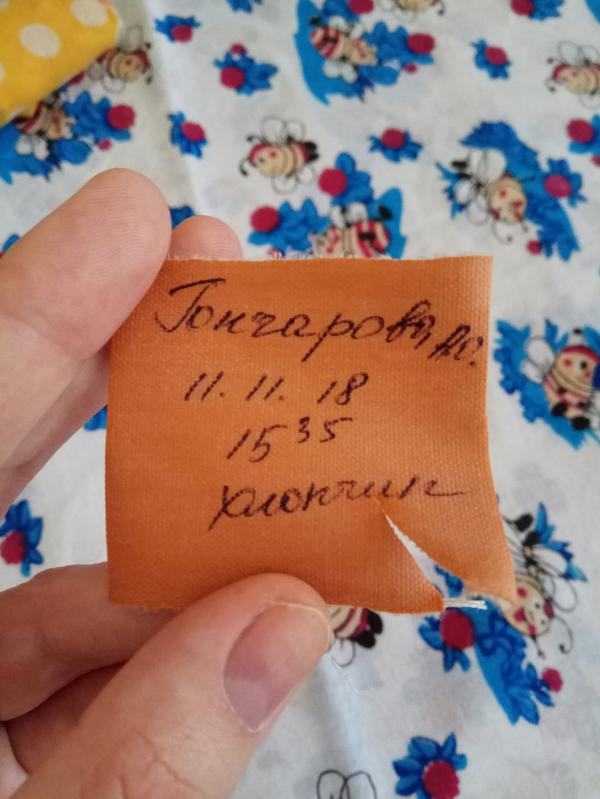 Гончарова А.О.
11.11.18
15 35
хлопчик